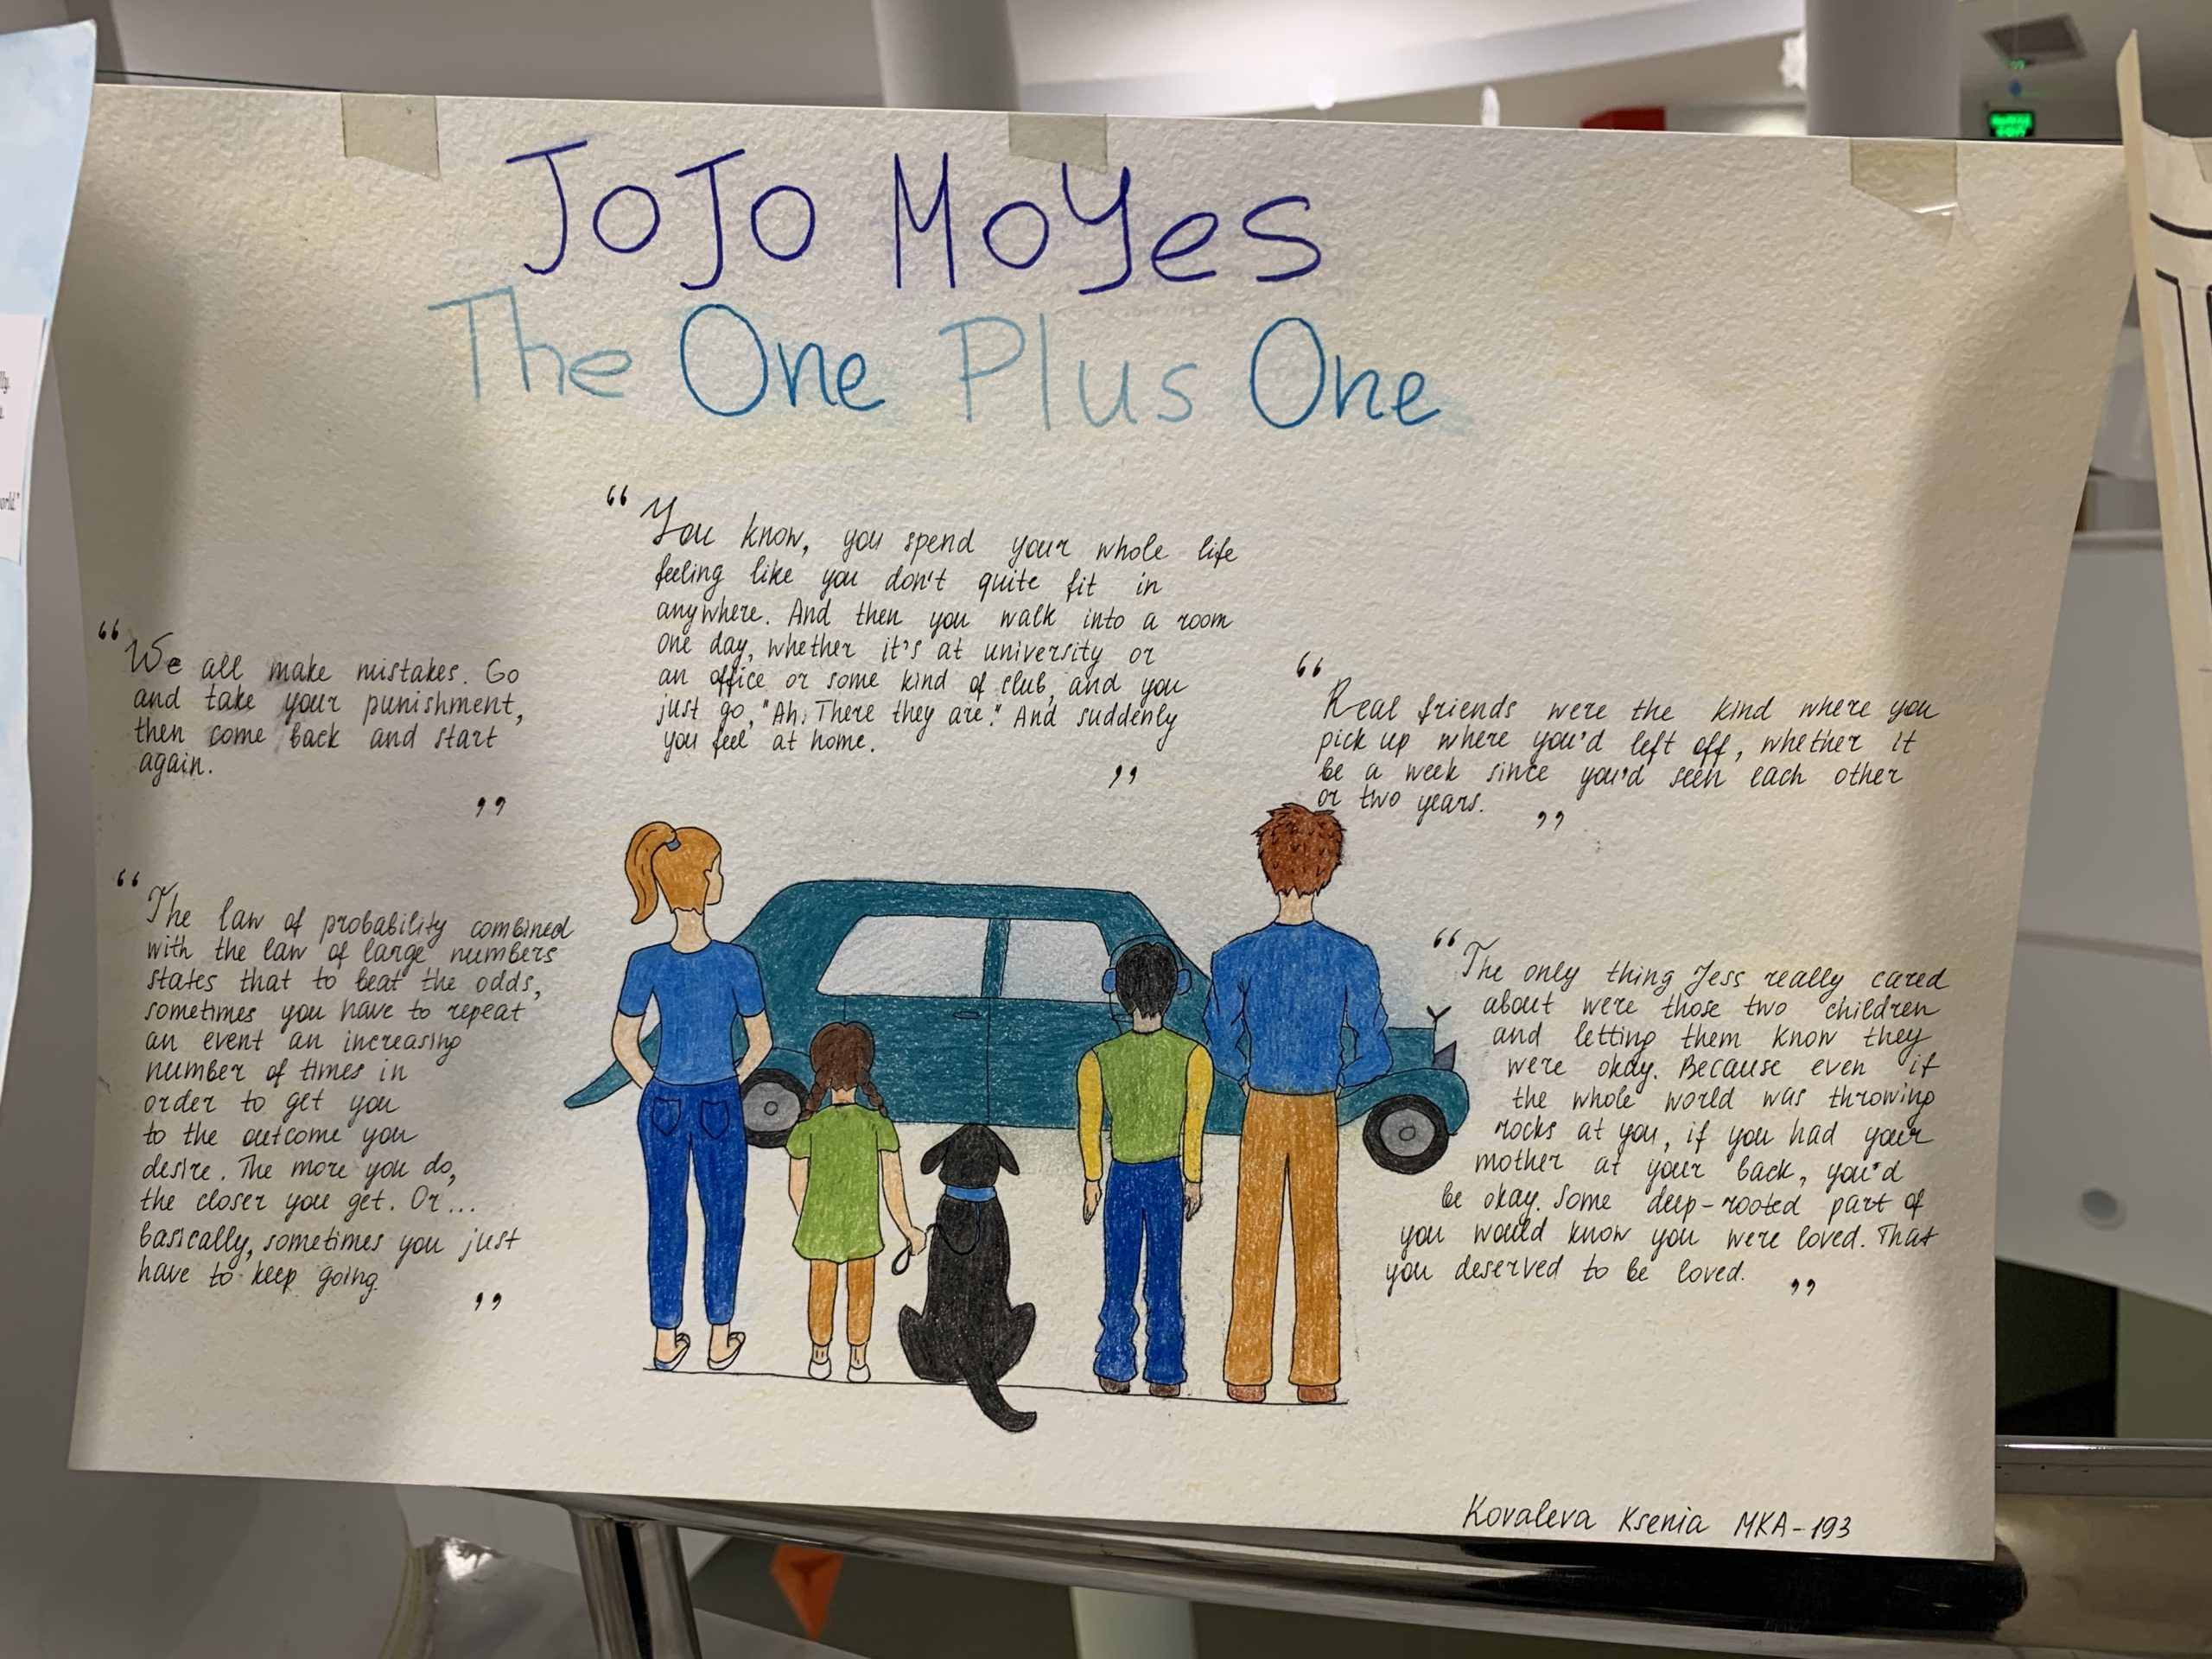 JoJo MoYes
The One Plus One
“ You know, you spend your whole life
feeling like you don't quite fit in
anywhere. And then you walk into a room
one day, whether it's at university or
an office or some kind of club, and you
just go, "Ah. There they are." And suddenly
you feel at home.
”
“ We all make mistakes. Go
and take your punishment,
then come back and start
again.
”
“ Real friends were the kind where you
pick up where you'd left off, whether it
be a week since you'd seen each other
or two years. ”
“ The law of probability combined
with the law of large numbers
states that to beat the odds,
sometimes you have to repeat
an event an increasing
number of times in
order to get you
to the outcome you
desire. The more you do,
the closer you get. Or...
basically, sometimes you just
have to keep going.
”
“ The only thing Jess really cared
about were those two children
and letting them know they
were okay. Because even if
the whole world was throwing
rocks at you, if you had your
mother at your back, you'd
be okay. Some deep-rooted part of
you would know you were loved. That
you deserved to be loved. ”
Kovaleva Ksenia MKA-193